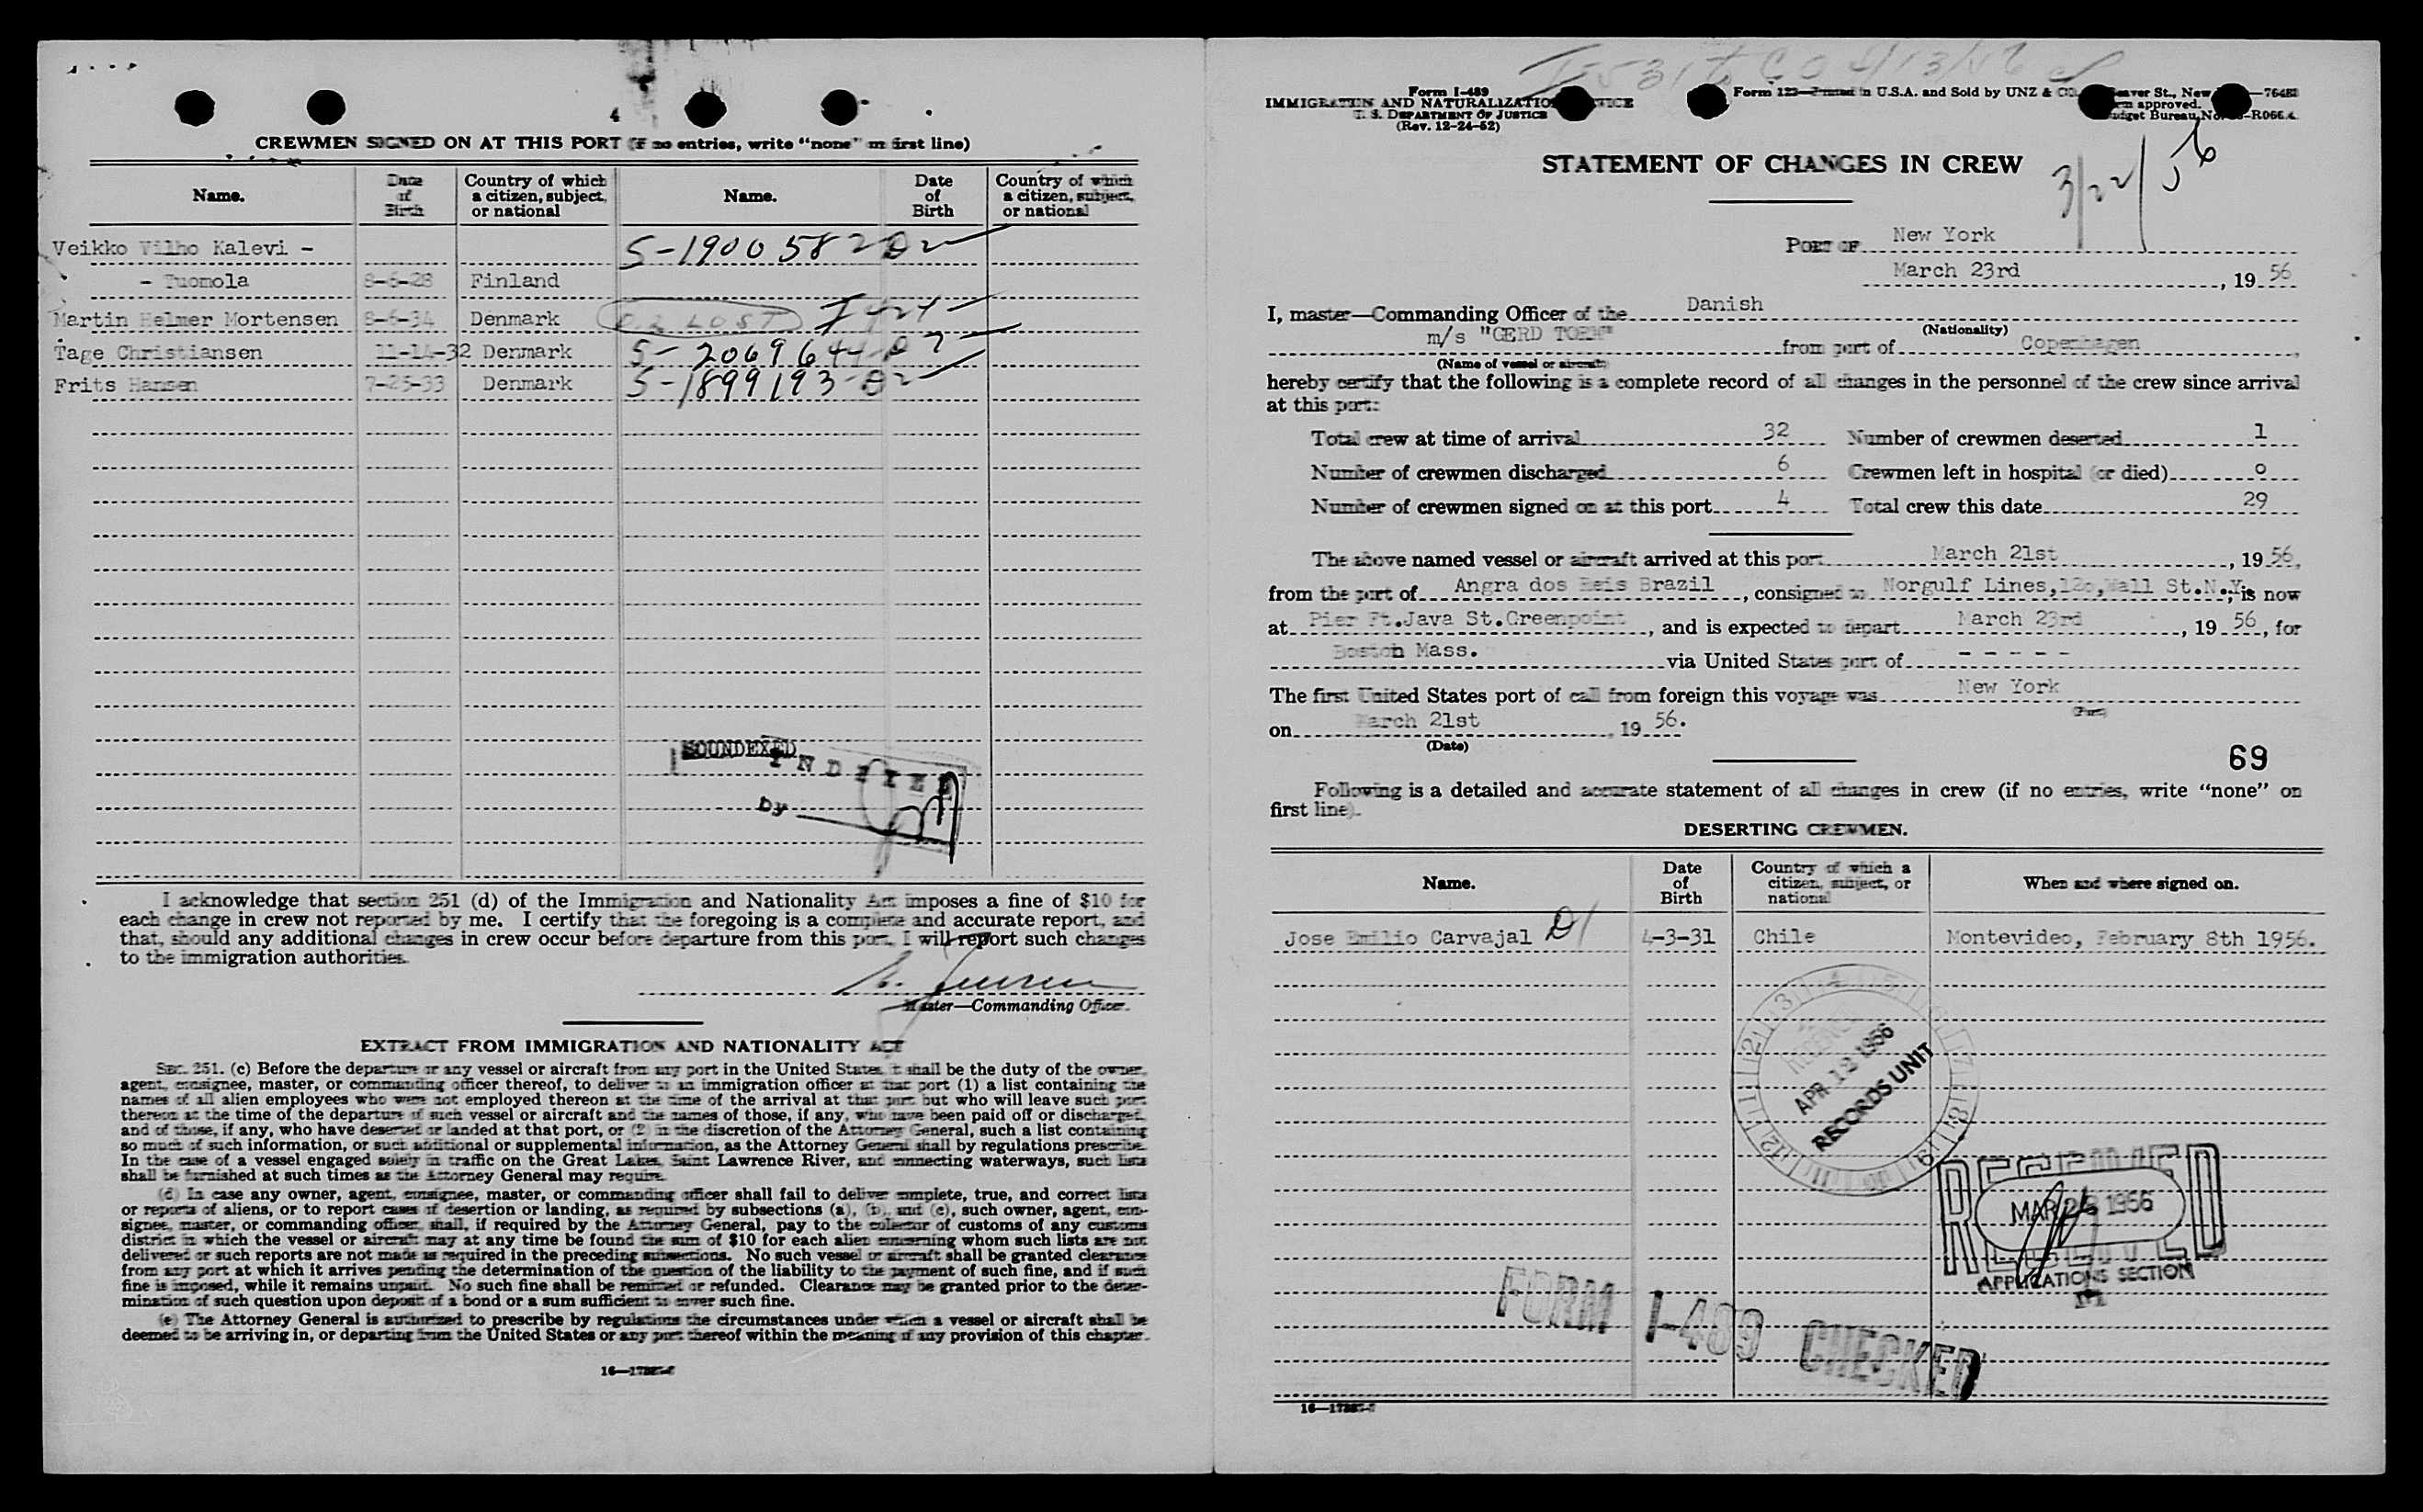 4
CREWMEN SIGNED ON AT THIS PORT (If no entries, write “none” on first line)
Name. Date of Birth Country of which a citizen, subject, or national Name. Date of Birth Country of which a citizen, subject, or national
Veikko Vilho Kalevi - S-1900582
- Tuomola 8-6-28 Finland
Martin Helmer Mortensen 8-6-34 Denmark LOST
Tage Christiansen 11-14-32 Denmark S-2069644
Frits Hansen 7-25-33 Denmark S-1899193
SOUNDEXED
INDEXED
by
I acknowledge that section 251 (d) of the Immigration and Nationality Act imposes a fine of $10 for
each change in crew not reported by me. I certify that the foregoing is a complete and accurate report, and
that, should any additional changes in crew occur before departure from this port, I will report such changes
to the immigration authorities.
Master—Commanding Officer.
EXTRACT FROM IMMIGRATION AND NATIONALITY ACT
SEC. 251. (c) Before the departure of any vessel or aircraft from any port in the United States, it shall be the duty of the owner,
agent, consignee, master, or commanding officer thereof, to deliver to an immigration officer at that port (1) a list containing the
names of all alien employees who were not employed thereon at the time of the arrival at that port but who will leave such port
thereon at the time of the departure of such vessel or aircraft and the names of those, if any, who have been paid off or discharged,
and of those, if any, who have deserted or landed at that port, or (2) in the discretion of the Attorney General, such a list containing
so much of such information, or such additional or supplemental information, as the Attorney General shall by regulations prescribe.
In the case of a vessel engaged solely in traffic on the Great Lakes, Saint Lawrence River, and connecting waterways, such lists
shall be furnished at such times as the Attorney General may require.
(d) In case any owner, agent, consignee, master, or commanding officer shall fail to deliver complete, true, and correct lists
or reports of aliens, or to report cases of desertion or landing, as required by subsections (a), (b), and (c), such owner, agent, con-
signee, master, or commanding officer, shall, if required by the Attorney General, pay to the collector of customs of any customs
district in which the vessel or aircraft may at any time be found the sum of $10 for each alien concerning whom such lists are not
delivered or such reports are not made as required in the preceding subsections. No such vessel or aircraft shall be granted clearance
from any port at which it arrives pending the determination of the question of the liability to the payment of such fine, and if such
fine is imposed, while it remains unpaid. No such fine shall be remitted or refunded. Clearance may be granted prior to the deter-
mination of such question upon deposit of a bond or a sum sufficient to cover such fine.
(e) The Attorney General is authorized to prescribe by regulations the circumstances under which a vessel or aircraft shall be
deemed to be arriving in, or departing from the United States or any port thereof within the meaning of any provision of this chapter.
Form I-489
IMMIGRATION AND NATURALIZATION SERVICE
U. S. DEPARTMENT OF JUSTICE
(Rev. 12-24-52)
Form 122—Printed in U.S.A. and Sold by UNZ & CO. Beaver St., New —76482
Form approved.
Budget Bureau No. -R066.4.
STATEMENT OF CHANGES IN CREW
3/22/56
PORT OF New York
March 23rd, 1956
I, master—Commanding Officer of the Danish
(Nationality)
m/s "GERD TORM" from port of Copenhagen,
(Name of vessel or aircraft)
hereby certify that the following is a complete record of all changes in the personnel of the crew since arrival
at this port:
Total crew at time of arrival 32 Number of crewmen deserted 1
Number of crewmen discharged 6 Crewmen left in hospital (or died) 0
Number of crewmen signed on at this port 4 Total crew this date 29
The above named vessel or aircraft arrived at this port March 21st, 1956,
from the port of Angra dos Reis Brazil, consigned to Norgulf Lines,120,Wall St.N.Y., is now
at Pier Ft.Java St.Greenpoint, and is expected to depart March 23rd, 1956, for
Boston Mass. via United States port of - - - - -
The first United States port of call from foreign this voyage was New York
(Port)
on March 21st, 1956.
(Date)
69
Following is a detailed and accurate statement of all changes in crew (if no entries, write “none” on
first line).
DESERTING CREWMEN.
Name. Date of Birth Country of which a citizen, subject, or national When and where signed on.
Jose Emilio Carvajal 4-3-31 Chile Montevideo, February 8th 1956.
RECEIVED
APR 12 1956
RECORDS UNIT
RECEIVED
MAR 26 1956
RECEIVED
APPLICATIONS SECTION
FORM I-489 CHECKED